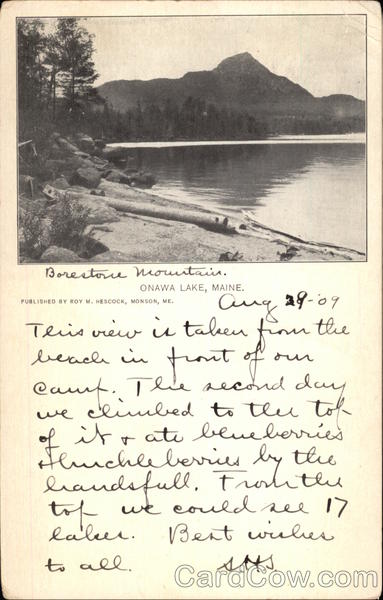 Borestone Mountain.
ONAWA LAKE, MAINE.
PUBLISHED BY ROY M. HESCOCK, MONSON, ME.
Aug 29-'09
This view is taken from the
beach in front of our
camp. The second day
we climbed to the top
of it & ate blueberries
& huckleberries by the
handsfull. From the
top we could see 17
lakes. Best wishes
to all.
CardCow.com®